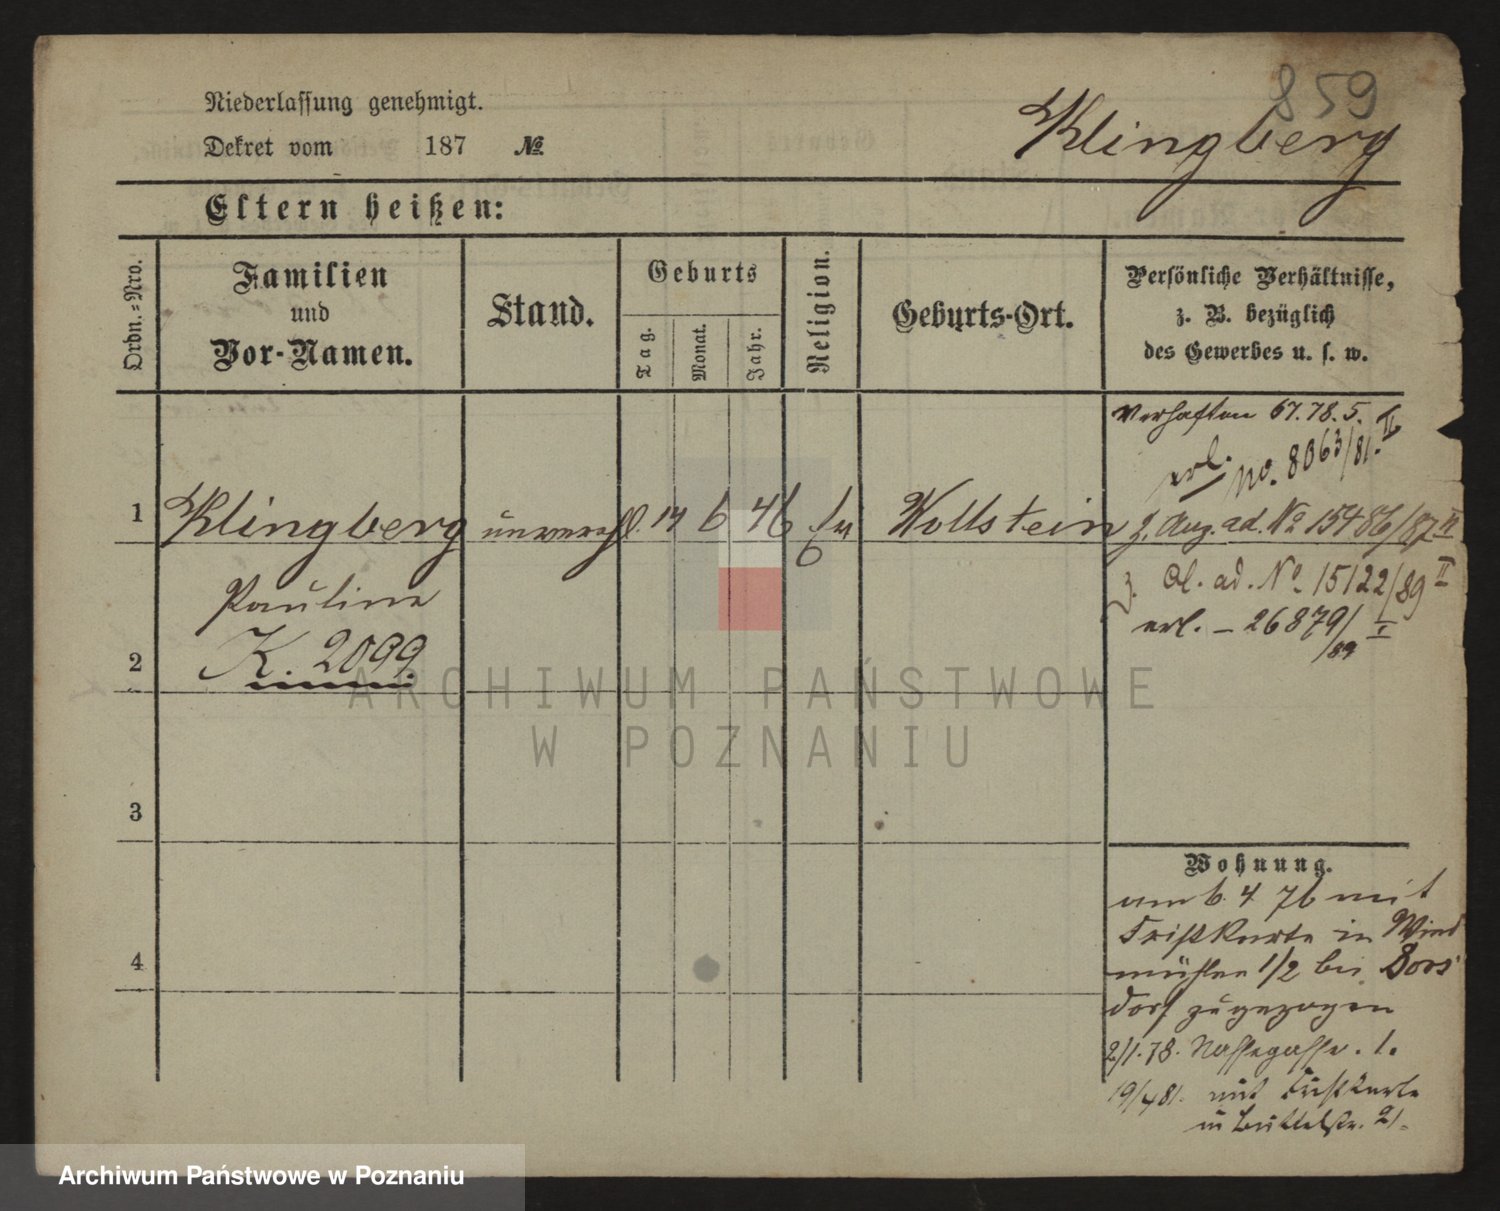 859
Niederlassung genehmigt.
Dekret vom 187 №
Klingberg
Eltern heißen:
Ordn.-Nro.
Familien
und
Vor-Namen.
Stand.
Geburts
Tag.
Monat.
Jahr.
Religion.
Geburts-Ort.
Persönliche Verhältnisse,
z. B. bezüglich
des Gewerbes u. s. w.
Verhaften 67.78.5. II
erl. No. 8063/81.
1 Klingberg unverehl. 14 6 46 Ev Wollstein z. Aug. ad. No 15486/87 II
Pauline
z. Ol. ad. No. 15122/89 II
erl. – 26879/89 I
2 K. 2099
3
4
Wohnung.
am 6. 4 76 mit
Fristkarte in Wind
mühlen 1/2 bei
dorf zugezogen
2/1.78. Nassegasse. 1.
19/4 81. mit Fristkarte
in Büttelstr. 21.
ARCHIWUM PAŃSTWOWE
W POZNANIU
Archiwum Państwowe w Poznaniu